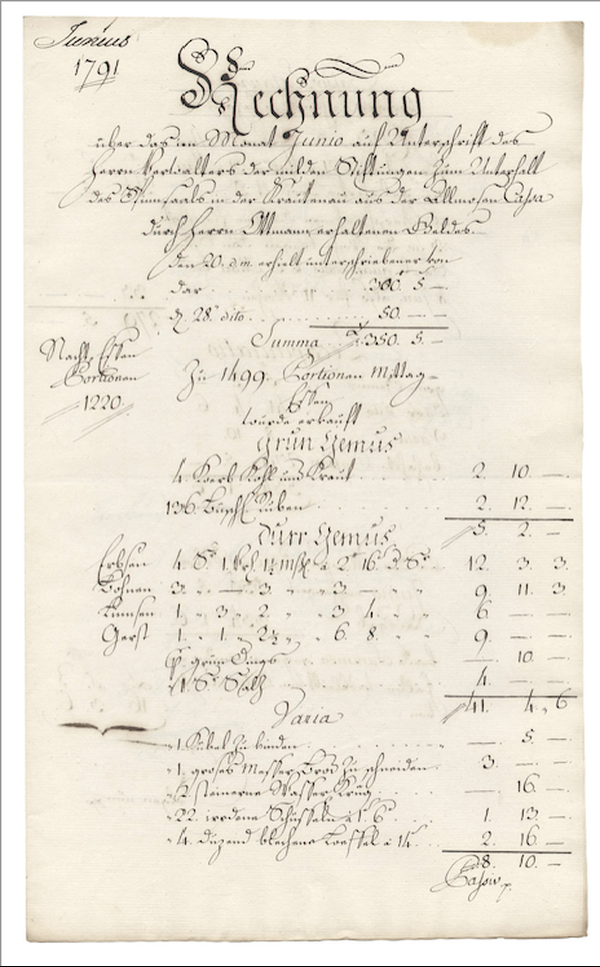 Junius
1791
Rechnung
über das im Monat Junio auf Unterschrift des
Herrn Verwalters der milden Stiftungen zum Unterhalt
des Spinnsaals in der Krautenau aus der Allmosen Cassa
durch Herrn Ottmann erhaltenen Geldes.
Den 20. d. m. erhielt unterschriebener von
dar 300. 5 —
d. 28. dito 50. — —
Summa 350. 5. —
Nacht Essen
Portionen
1220.
Zu 1499. Portionen Mittag-
Essen
wurde erkauft
Grün Gemüs
4. Koerb Kohl und Kraut 2. 10. —
136. Büschl. Rüben 2. 12. —
5. 2. —
Dürr Gemüs
Erbsen 4. S. 1. à 2 16. 12. 3. 3.
Bohnen 3. — 3. 3. — 9. 11. 3.
Linsen 1. 3 2. 3 4. 6 — —
Gerst 1. 1. 2½ 6. 8. 9. — —
grün Dings — 10. —
1. S. Saltz 4. — —
41. 4. 6
Varia
1. Kübel zu binden — 5. —
1. groses Messer Brod zu schneiden 3. — —
2. steinerne Wasser Krüg — 16. —
22. irrdene Schüsseln à 1. 6 1. 13. —
4. Duzend blechene Loeffel à 14 2. 16. —
8. 10. —